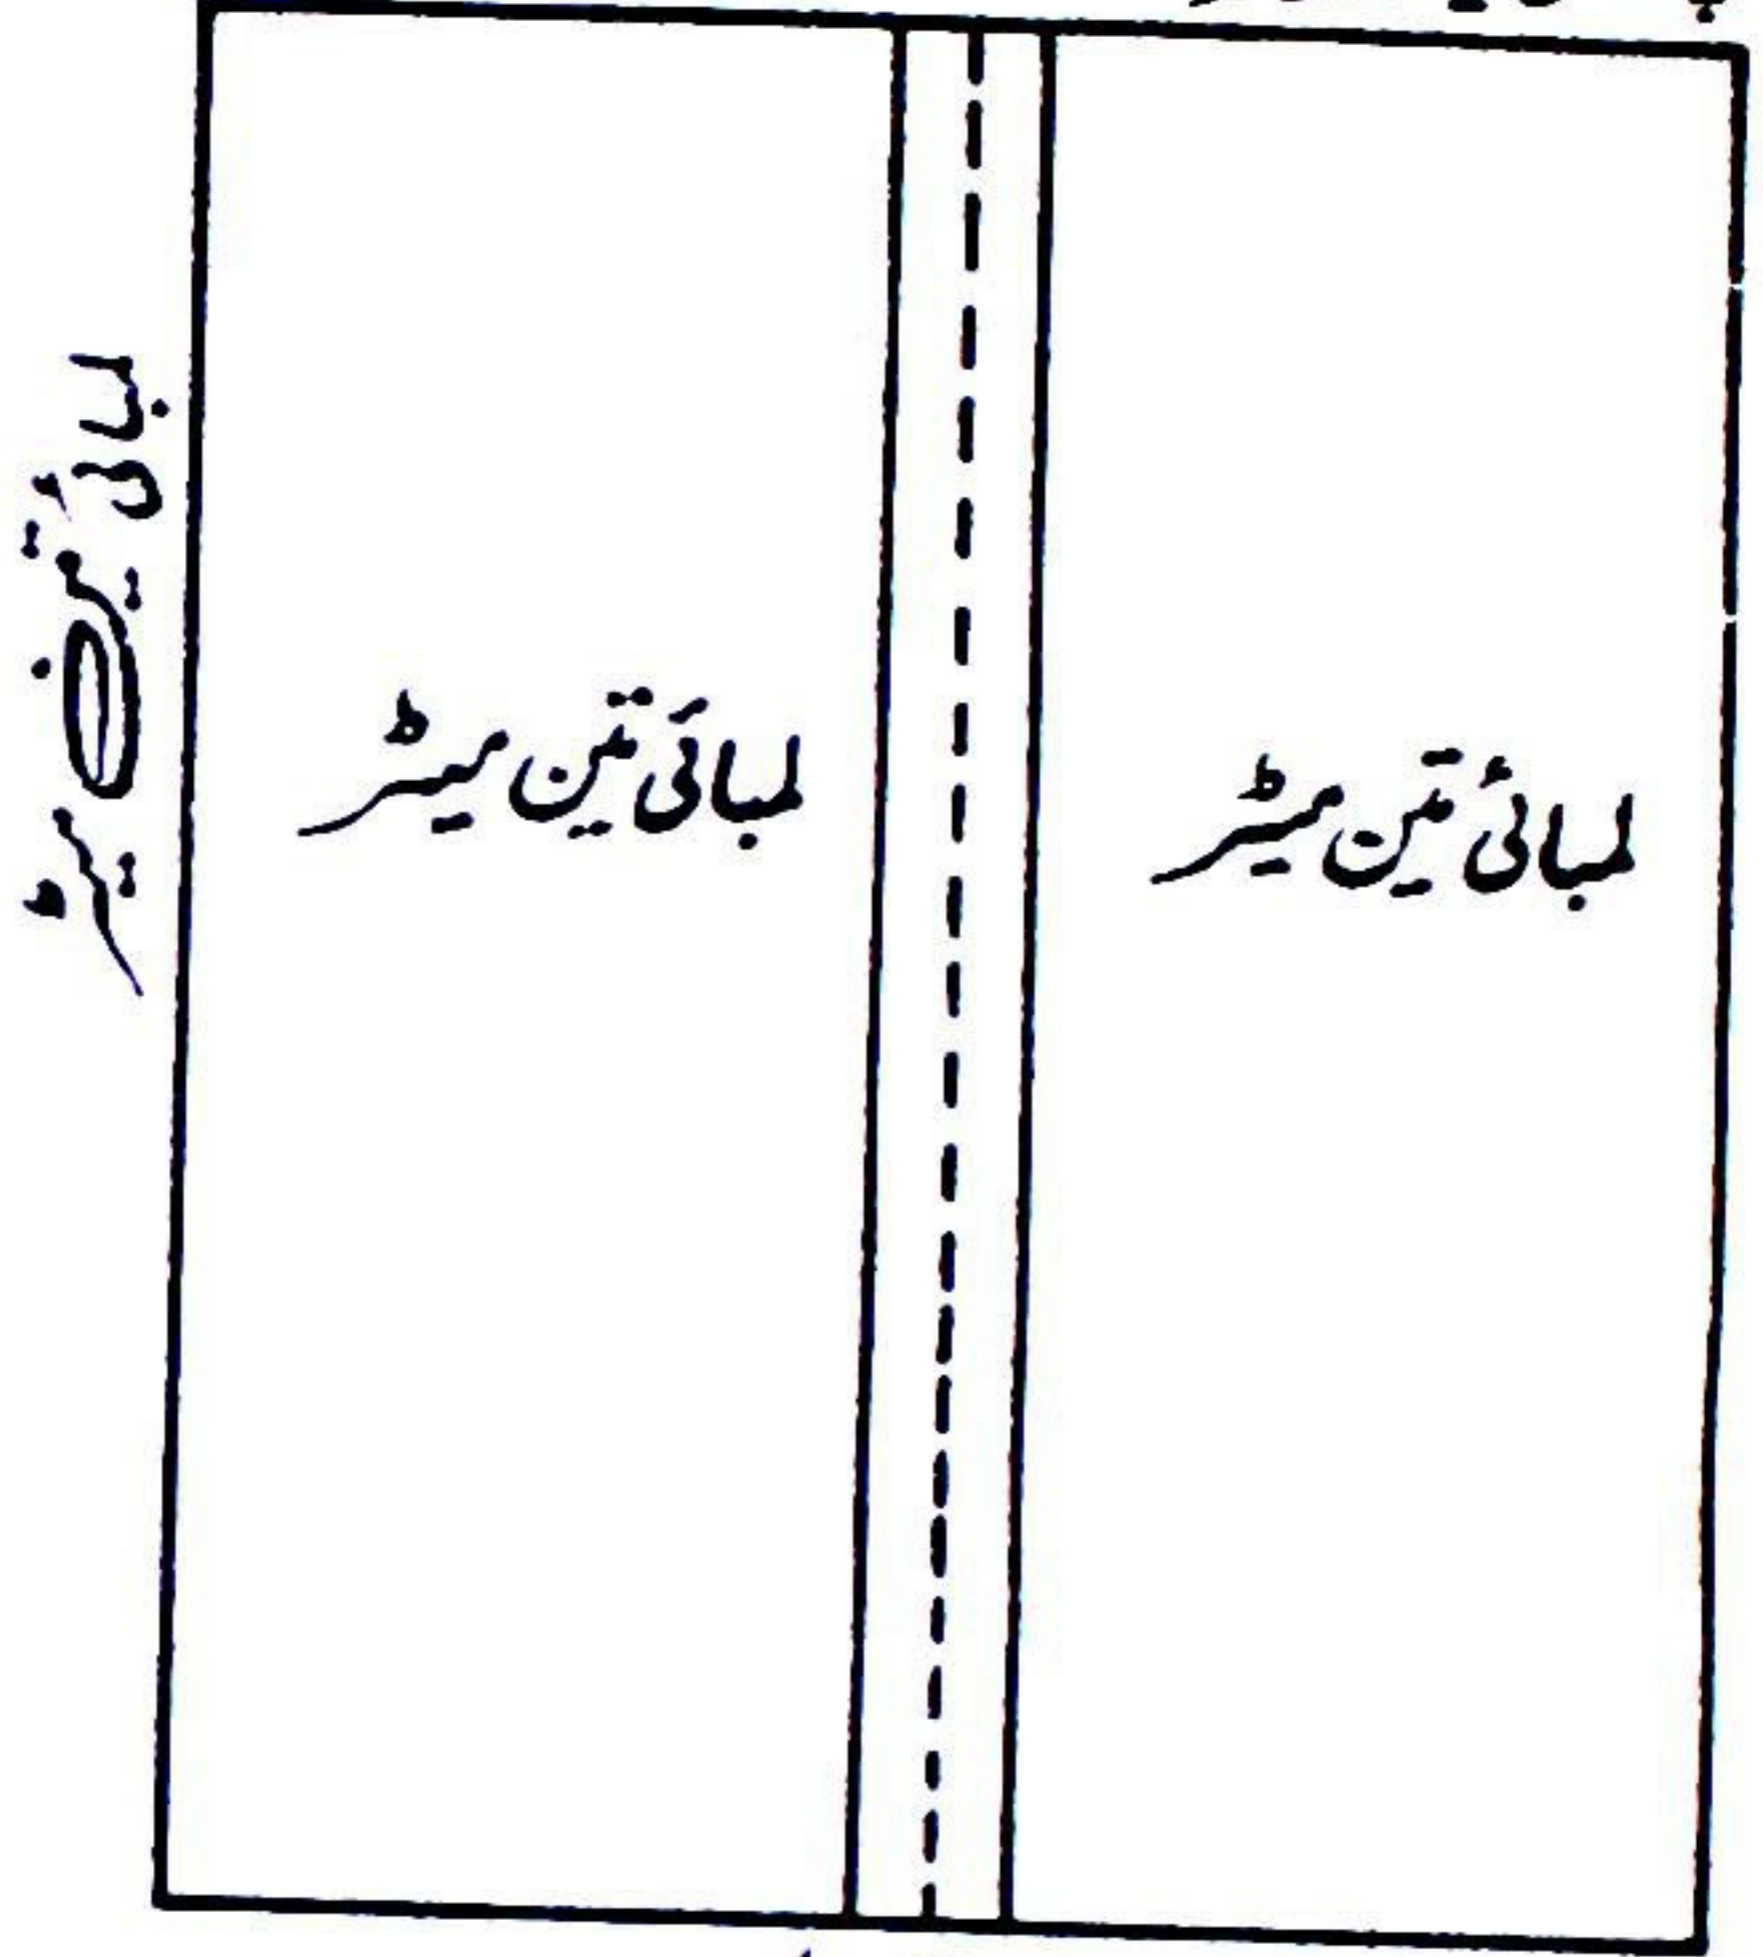 لمبائی تین میٹر
لمبائی تین میٹر
لمبائی
میٹر